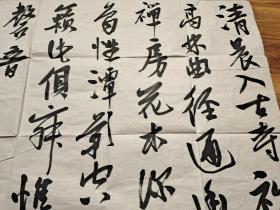 清晨入古寺初
高林曲径通幽
禅房花木深
鸟性潭影空
籁此俱寂惟
磬音